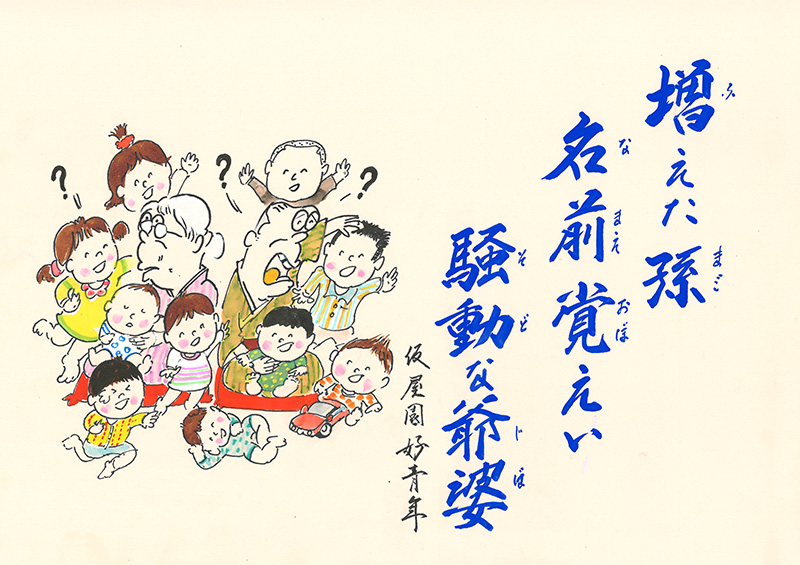 増えた孫
ふ まご
名前覚えい
な まえ おぼ
騒動な爺婆
そ ど じ ぼ
仮屋園好青年
?
?
?